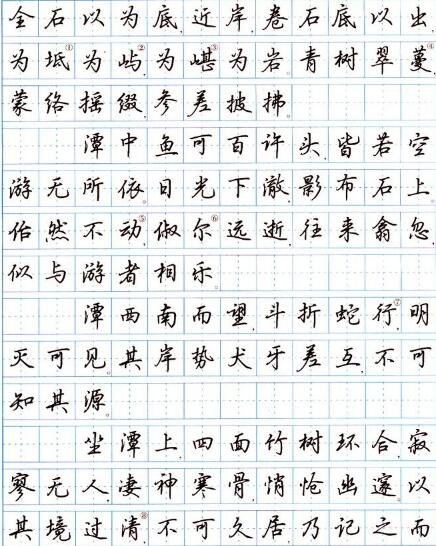 全石以为底，近岸，卷石底以出，
为坻①，为屿②，为嵁③，为岩。青树翠蔓④，
蒙络摇缀，参差披拂。
潭中鱼可百许头，皆若空
游无所依。日光下澈，影布石上，
佁然不动⑤，俶尔⑥远逝，往来翕忽，
似与游者相乐。
潭西南而望，斗折蛇行⑦，明
灭可见。其岸势犬牙差互，不可
知其源。
坐潭上，四面竹树环合，寂
寥无人，凄神寒骨，悄怆幽邃。以
其境过清⑧，不可久居，乃记之而